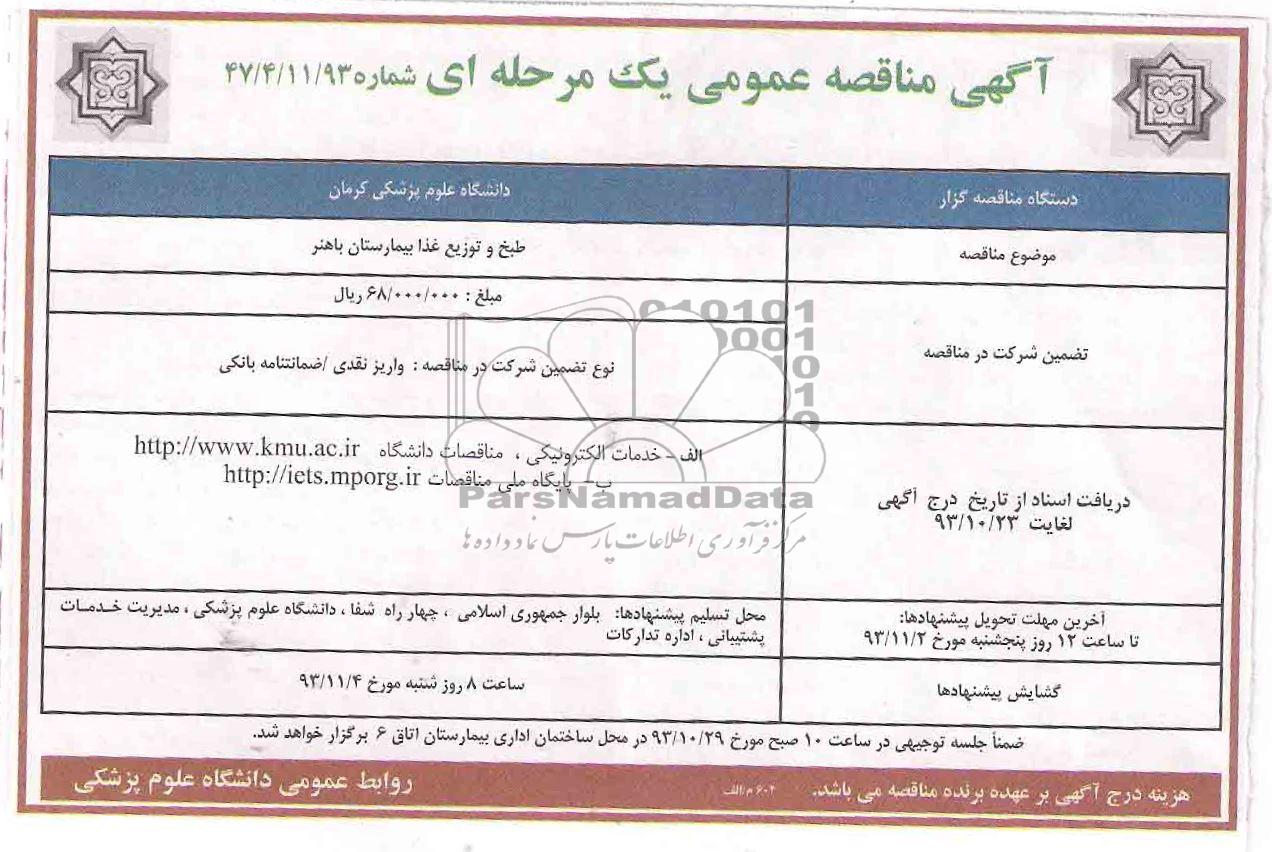 آگهی مناقصه عمومی یک مرحله ای شماره ۴۷/۴/۱۱/۹۳
دستگاه مناقصه گزار
دانشگاه علوم پزشکی کرمان
موضوع مناقصه
طبخ و توزیع غذا بیمارستان باهنر
تضمین شرکت در مناقصه
مبلغ : ۶۸/۰۰۰/۰۰۰ ریال
نوع تضمین شرکت در مناقصه : واریز نقدی /ضمانتنامه بانکی
دریافت اسناد از تاریخ درج آگهی
لغایت ۹۳/۱۰/۲۳
الف - خدمات الکترونیکی ، مناقصات دانشگاه http://www.kmu.ac.ir
ب- پایگاه ملی مناقصات http://iets.mporg.ir
آخرین مهلت تحویل پیشنهادها:
تا ساعت ۱۲ روز پنجشنبه مورخ ۹۳/۱۱/۲
محل تسلیم پیشنهادها: بلوار جمهوری اسلامی ، چهار راه شفا ، دانشگاه علوم پزشکی ، مدیریت خدمات
پشتیبانی ، اداره تدارکات
گشایش پیشنهادها
ساعت ۸ روز شنبه مورخ ۹۳/۱۱/۴
ضمناً جلسه توجیهی در ساعت ۱۰ صبح مورخ ۹۳/۱۰/۲۹ در محل ساختمان اداری بیمارستان اتاق ۶ برگزار خواهد شد.
هزینه درج آگهی بر عهده برنده مناقصه می باشد.
۶۰۴ م/الف
روابط عمومی دانشگاه علوم پزشکی
010101
0001
10
1
0
ParsNamadData
مرکز فرآوری اطلاعات پارس نماد داده ها